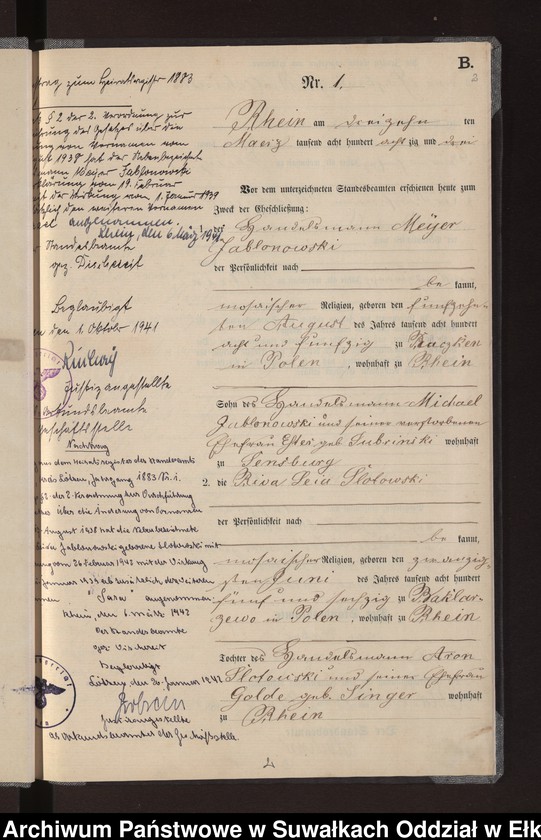 B.
Nr. 1.
Rhein am dreizehn ten
Maerz tausend acht hundert acht zig und drei
Vor dem unterzeichneten Standesbeamten erschienen heute zum
Zweck der Eheschließung:
1. der Handelsmann Meyer
Jablonowski
der Persönlichkeit nach
be kannt,
mosaischer Religion, geboren den fünfzehn-
ten August des Jahres tausend acht hundert
acht und fünfzig zu Raczken
in Polen, wohnhaft zu Rhein
Sohn des Handelsmann Michael
Jablonowski und seiner verstorbenen
Ehefrau Ester geb. Lubrinski wohnhaft
zu Sensburg
2. die Riva Leia Slotowski
der Persönlichkeit nach
be kannt,
mosaischer Religion, geboren den zwanzig-
sten Juni des Jahres tausend acht hundert
fünf und sechzig zu Baklar-
zewo in Polen, wohnhaft zu Rhein
Tochter des Handelsmann Aron
Slotowski und seiner Ehefrau
Golde geb. Singer wohnhaft
zu Rhein
zum Heiratsregister 1883
§ 2 der 2. Verordnung zur
des Gesetzes über die
von Vornamen vom
1938 hat der Nebenbezeichnete
Meyer Jablonowski
vom 19. Februar
der Wirkung vom 1. Januar 1939
den weiteren Vornamen
angenommen.
Rhein, den 6. März 1941
Standesbeamte
gez. Dischereit
Beglaubigt
den 1. Oktober 1941
Justizangestellte
Nachtrag
aus dem Heiratsregister des Standesamts
Lötzen, Jahrgang 1883 Nr. 1.
über die Änderung von Vornamen
August 1938 hat die Nebenbezeichnete
Jablonowski geborene Slotowski mit
vom 26 Februar 1941 mit der Wirkung
"Sara" angenommen
Rhein, den 6. März 1941
Der Standesbeamte
gez. Dischereit
Beglaubigt
Lötzen, den 20. Januar 1942
Justizangestellte
als Urkundsbeamter der Geschäftsstelle
Archiwum Państwowe w Suwałkach Oddział w Ełk